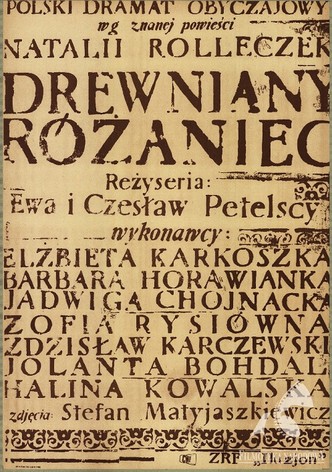 POLSKI DRAMAT OBYCZAJOWY
wg znanej powieści
NATALII ROLLECZEK
DREWNIANY
RÓŻANIEC
Reżyseria:
Ewa i Czesław Petelscy
wykonawcy:
ELŻBIETA KARKOSZKA
BARBARA HORAWIANKA
JADWIGA CHOJNACKA
ZOFIA RYSIÓWNA
ZDZISŁAW KARCZEWSKI
JOLANTA BOHDAL
HALINA KOWALSKA
zdjęcia: Stefan Matyjaszkiewicz
ZRF "Iluzjon"